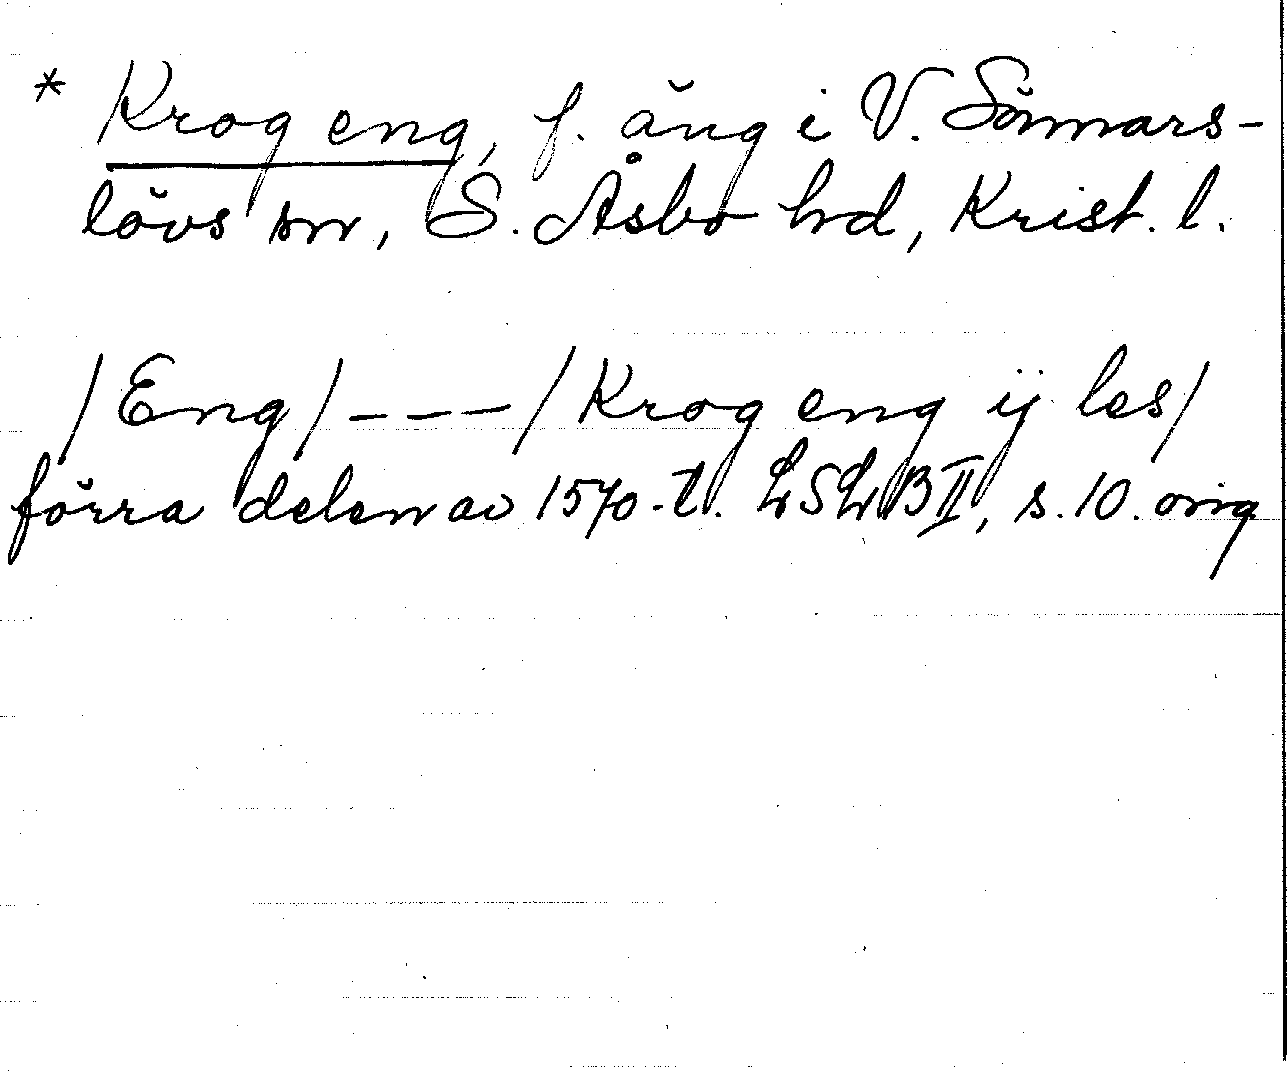 * Krog eng, f. äng i V. Sönnars-
lövs sn, S. Åsbo hd, Krist. l.
/Eng/ – – – /Krog eng ij les/
förra delen av 1570-t. LSLB II, s. 10. orig